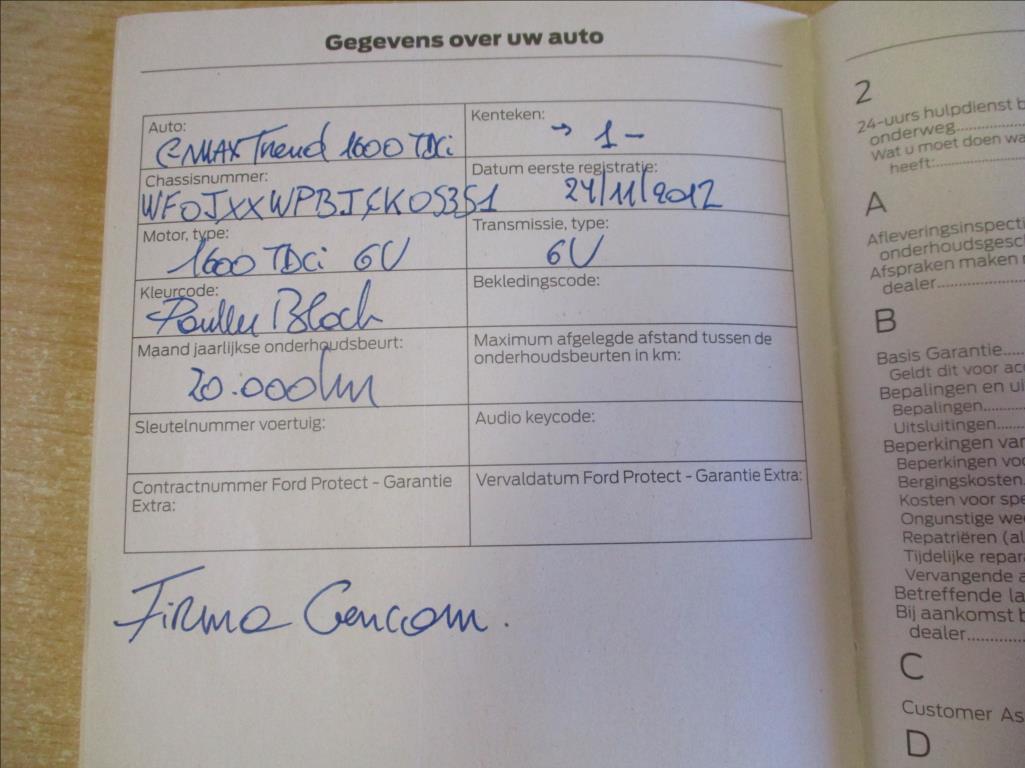 Gegevens over uw auto
Auto:
C-MAX Trend 1600 TDCi
Kenteken:
→ 1 -
Chassisnummer:
Datum eerste registratie:
24/11/2012
Motor, type:
1600 TDCi 6V
Transmissie, type:
6V
Kleurcode:
Black
Bekledingscode:
Maand jaarlijkse onderhoudsbeurt:
20.000km
Maximum afgelegde afstand tussen de
onderhoudsbeurten in km:
Sleutelnummer voertuig:
Audio keycode:
Contractnummer Ford Protect - Garantie
Extra:
Vervaldatum Ford Protect - Garantie Extra:
Firma Gencom.
2
24-uurs hulpdienst
onderweg
Wat u moet doen
heeft:
A
onderhoudsgesc
Afspraken maken
dealer
B
Basis Garantie
Geldt dit voor
Bepalingen en
Bepalingen
Uitsluitingen
Beperkingen van
Beperkingen
Bergingskosten
Kosten voor
Ongunstige
Repatriëren
Tijdelijke
Vervangende
Betreffende
Bij aankomst
dealer
C
Customer
D